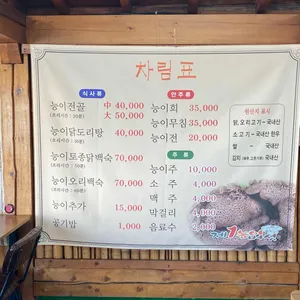 차림표
식사류
능이전골 中 40,000
大 50,000
능이닭도리탕 40,000
능이토종닭백숙 70,000
능이오리백숙 70,000
능이추가 15,000
공기밥 1,000
안주류
능이회 35,000
능이무침 35,000
능이전 20,000
주류
능이주 10,000
소주 4,000
맥주 4,000
막걸리 4,000
음료수 2,000
원산지 표시
닭,오리고기-국내산
소고기-국내산 한우
쌀 - 국내산
김치 국내산